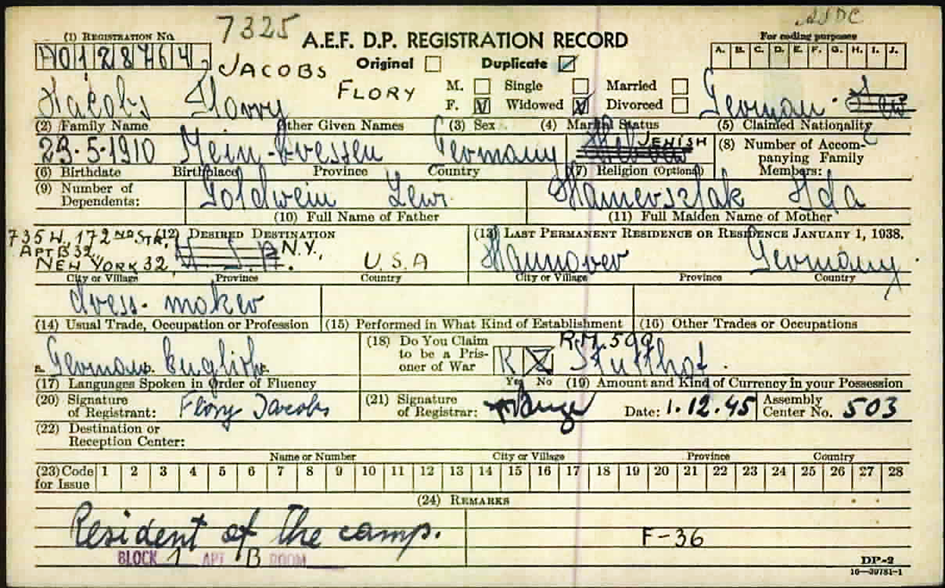 7325
AJDC
(1) REGISTRATION NO. A.E.F. D.P. REGISTRATION RECORD For coding purposes
Original Duplicate A. B. C. D. E. F. G. H. I. J.
JACOBS
FLORY M. Single Married
F. Widowed Divorced
Jacobs Florry German
(2) Family Name Other Given Names (3) Sex (4) Marital Status (5) Claimed Nationality
29.5.1910 Germany JEWISH (8) Number of Accom-
panying Family
Members:
(6) Birthdate Birthplace Province Country (7) Religion (Optional)
(9) Number of
Dependents: Goldwein Levi Ida
(10) Full Name of Father (11) Full Maiden Name of Mother
735 W. 172ND STR. (12) DESIRED DESTINATION (13) LAST PERMANENT RESIDENCE OR RESIDENCE JANUARY 1, 1938.
APT B 32,
NEW YORK 32, U. S. A. N.Y., U.S.A Hannover Germany
City or Village Province Country City or Village Province Country
dress-maker
(14) Usual Trade, Occupation or Profession (15) Performed in What Kind of Establishment (16) Other Trades or Occupations
German English (18) Do You Claim
to be a Pris-
oner of War R.M. 599 Stutthof.
Yes No
(17) Languages Spoken in Order of Fluency (19) Amount and Kind of Currency in your Possession
(20) Signature
of Registrant: Flory Jacobs (21) Signature
of Registrar: Date: 1.12.45 Assembly
Center No. 503
(22) Destination or
Reception Center:
Name or Number City or Village Province Country
(23) Code
for Issue 1 2 3 4 5 6 7 8 9 10 11 12 13 14 15 16 17 18 19 20 21 22 23 24 25 26 27 28
(24) REMARKS
Resident of the camp.
F-36
BLOCK 1 APT B ROOM
DP-2
16—39781-1